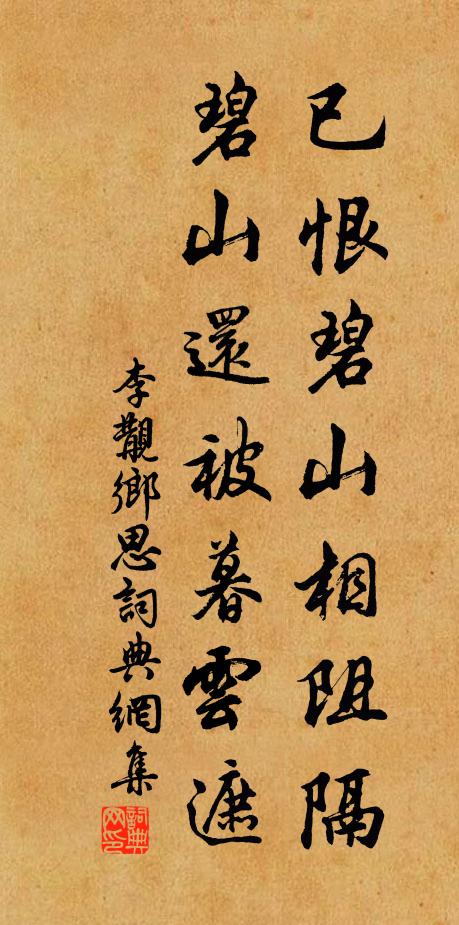 已恨碧山相阻隔
碧山還被暮雲遮
李覯鄉思詞典網集
詞典網印